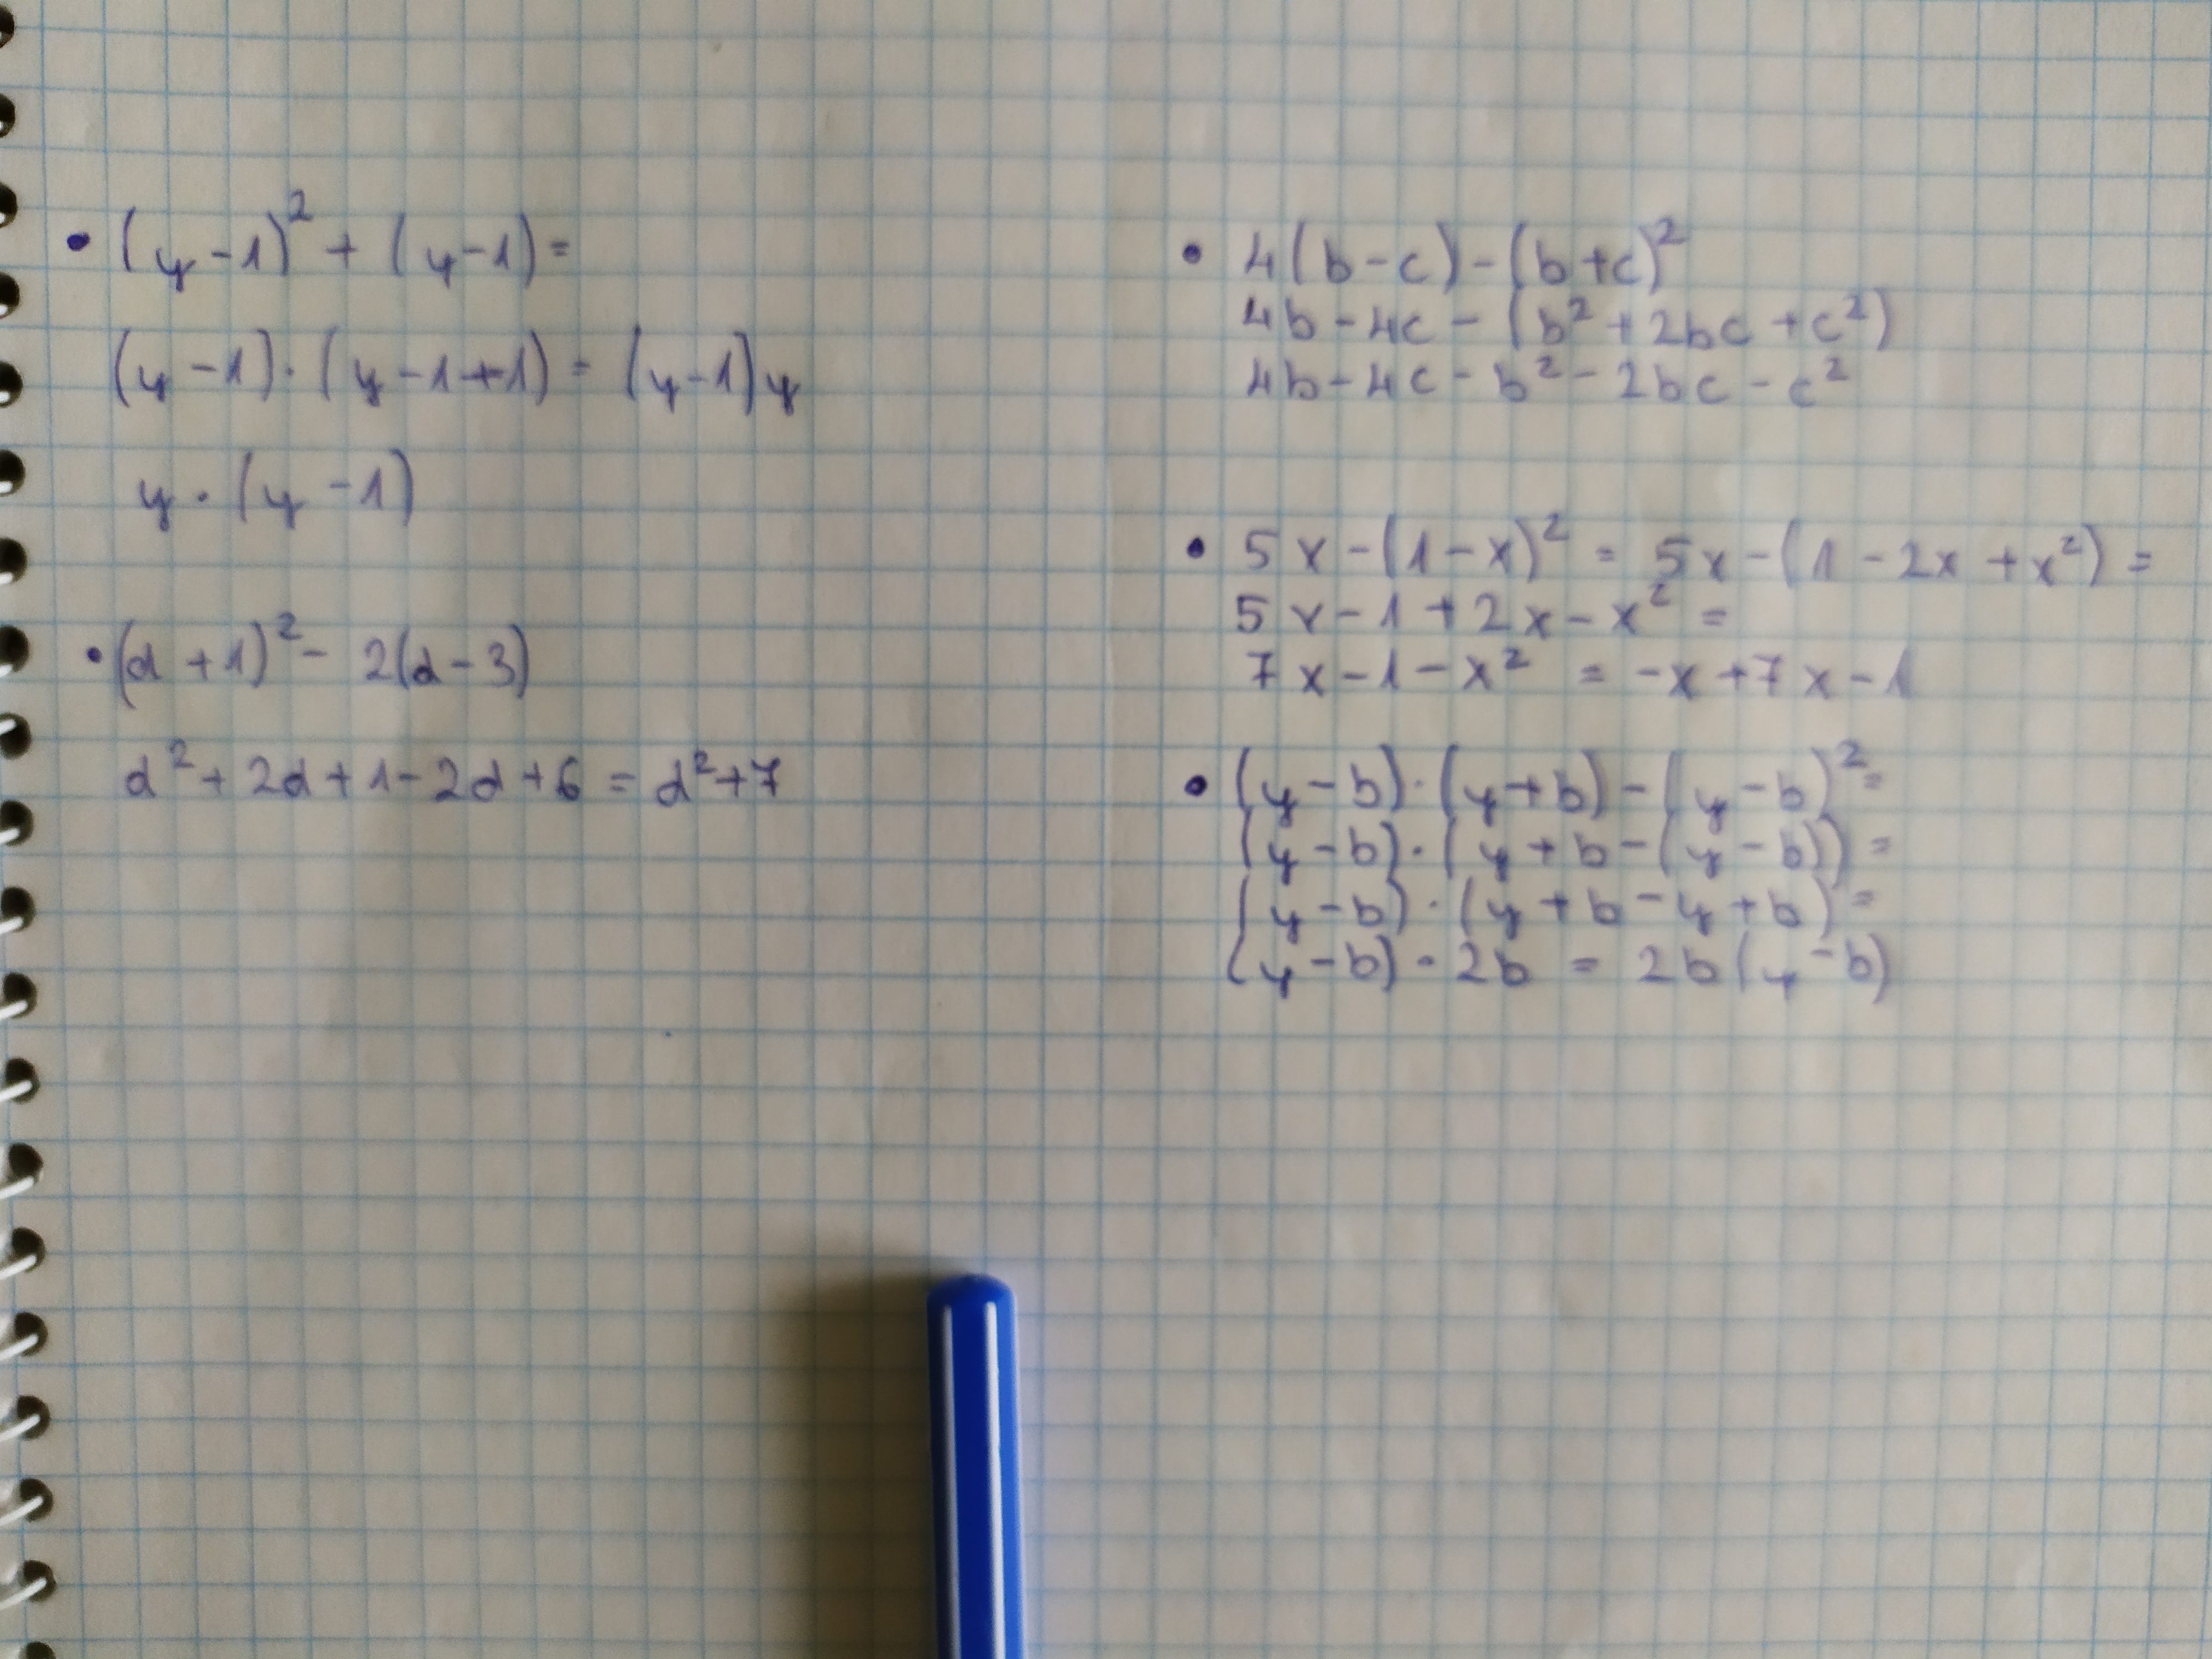 • (y-1)² + (y-1) =
(y-1)·(y-1+1) = (y-1)y
y·(y-1)
• (d+1)² - 2(d-3)
d² + 2d + 1 - 2d + 6 = d² + 7
• 4(b-c) - (b+c)²
4b - 4c - (b² + 2bc + c²)
4b - 4c - b² - 2bc - c²
• 5x - (1-x)² = 5x - (1 - 2x + x²) =
5x - 1 + 2x - x² =
7x - 1 - x² = -x + 7x - 1
• (y-b)·(y+b) - (y-b)² =
(y-b)·(y+b-(y-b)) =
(y-b)·(y+b-y+b) =
(y-b)·2b = 2b(y-b)